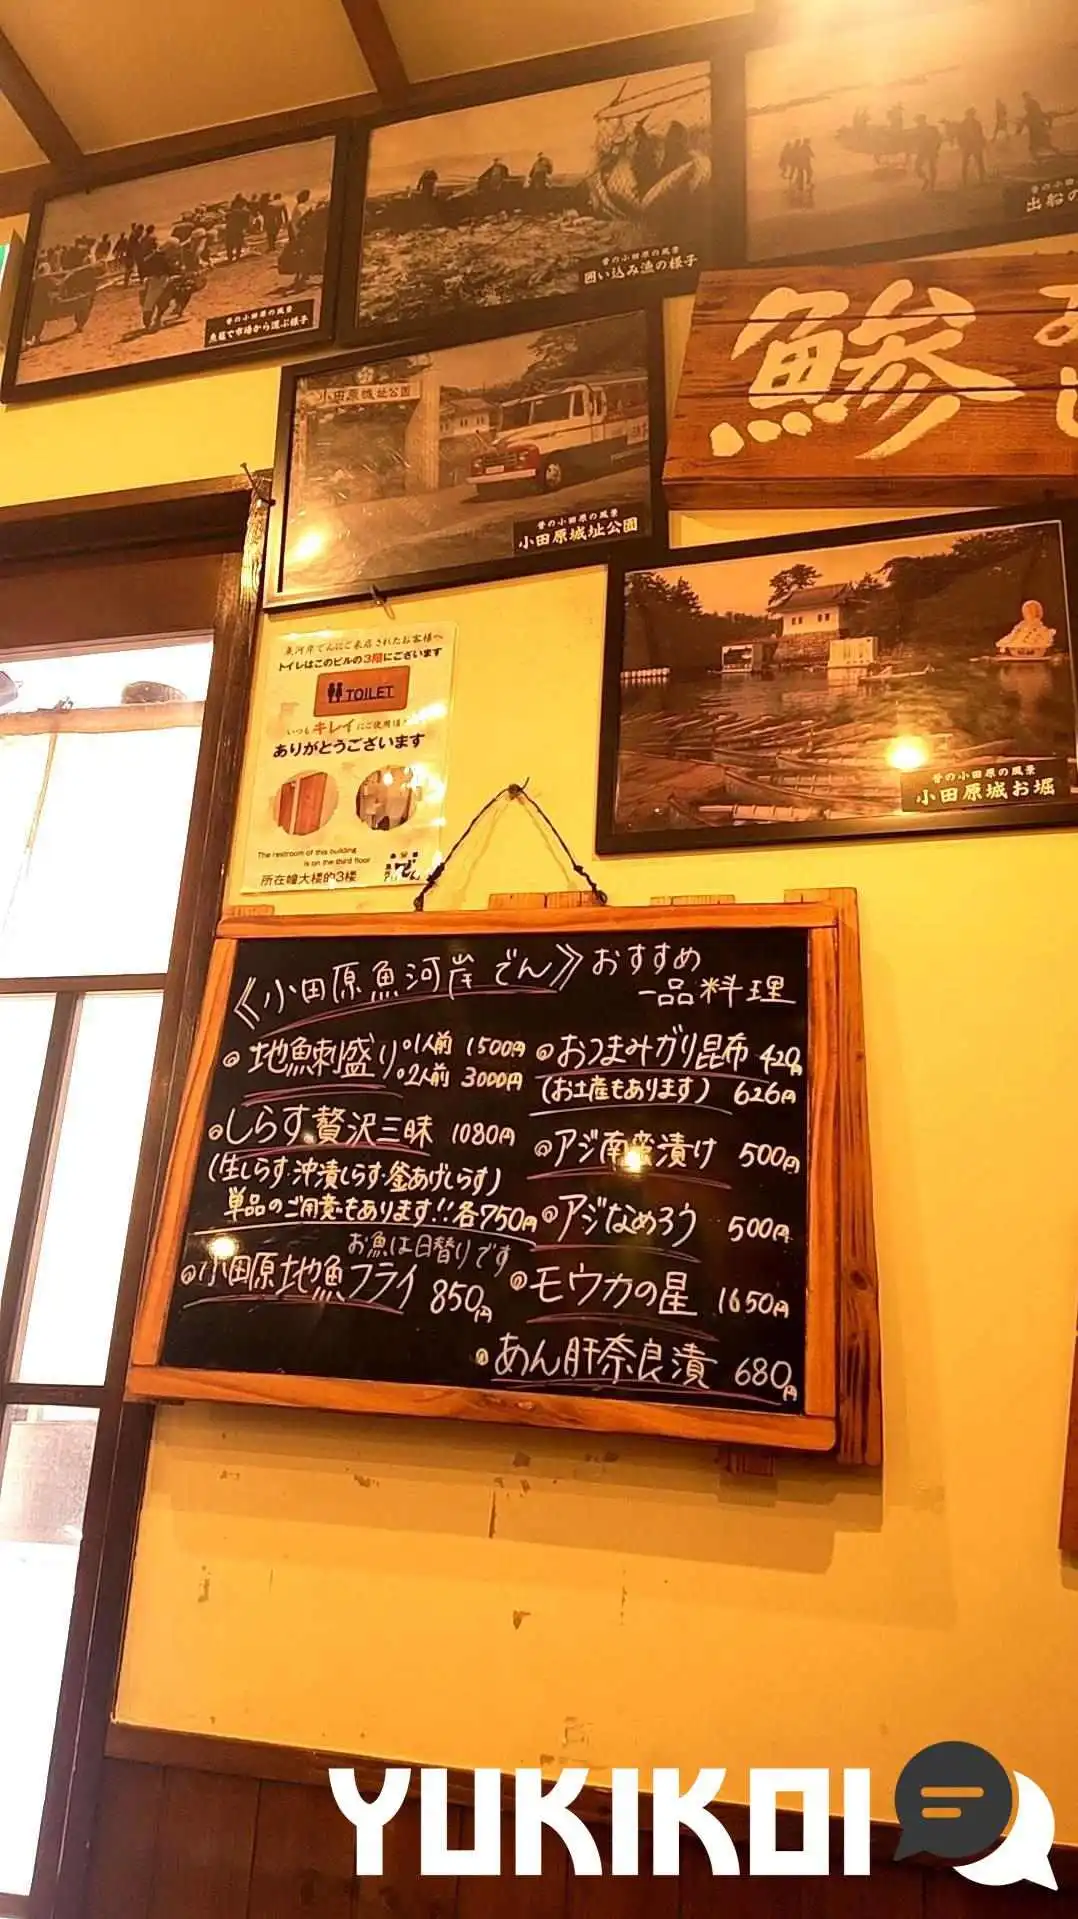 昔の小田原の風景
出船の
昔の小田原の風景
囲い込み漁の様子
昔の小田原の風景
魚籠で市場から運ぶ様子
鯵
小田原城址公園
昔の小田原の風景
小田原城址公園
昔の小田原の風景
小田原城お堀
魚河岸でんにご来店されたお客様へ
トイレはこのビルの3階にございます
TOILET
いつもキレイにご使用頂き
ありがとうございます
The restroom of this building
is on the third floor
所在幢大楼的3楼
でん
《小田原魚河岸 でん》おすすめ
一品料理
地魚刺盛り 1人前 1500円
2人前 3000円
しらす贅沢三昧 1080円
(生しらす・沖漬しらす・釜あげしらす)
単品のご用意もあります!!各750円
お魚は日替りです
小田原地魚フライ 850円
おつまみガリ昆布 420円
(お土産もあります) 626円
アジ南蛮漬け 500円
アジなめろう 500円
モウカの星 1650円
あん肝奈良漬 680円
YUKIKOI